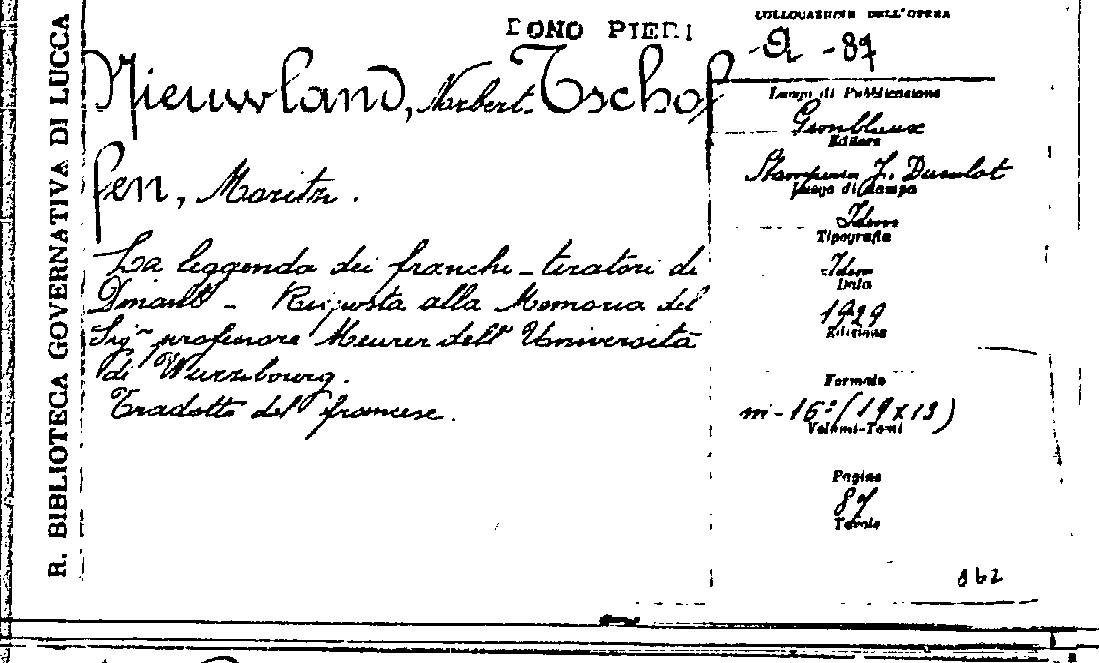 R. BIBLIOTECA GOVERNATIVA DI LUCCA
DONO PIERI
Nieuwland, Norbert. Tschof
fen, Moritz.
La leggenda dei franchi-tiratori di
Dinant - Risposta alla Memoria del
Sigr professore Meurer dell' Università
di Wurzbourg.
Tradotto del francese.
COLLOCAZIONE DELL'OPERA
-A -87
Luogo di Pubblicazione
Gembloux
Editore
Stamperia J. Duculot
Luogo di stampa
Idem
Tipografia
Idem
Data
1929
Edizione
Formato
in-16° (19x13)
Volumi-Tomi
Pagine
87
Tavole
062